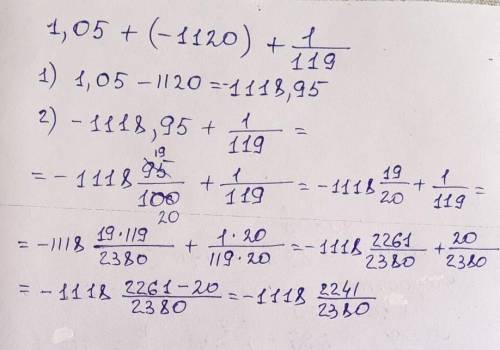 1,05 + (-1120) + 1/119
1) 1,05 - 1120 = -1118,95
2) -1118,95 + 1/119 =
= -1118 95/100 19 20 + 1/119 = -1118 19/20 + 1/119 =
= -1118 19·119/2380 + 1·20/119·20 = -1118 2261/2380 + 20/2380
= -1118 2261-20/2380 = -1118 2241/2380